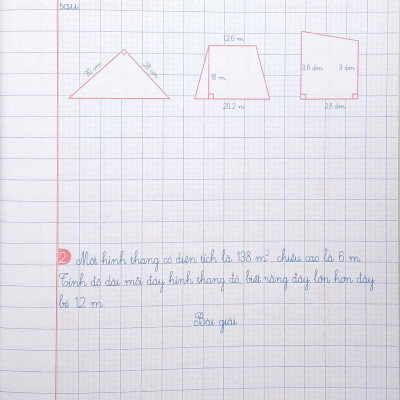 sau
30 cm
28 cm
12,6 m
18 m
20,2 m
3,6 dm
3 dm
2,8 dm
2 Một hình thang có diện tích là 138 m², chiều cao là 6 m
Tính độ dài mỗi đáy hình thang đó, biết rằng đáy lớn hơn đáy
bé 12 m
Bài giải